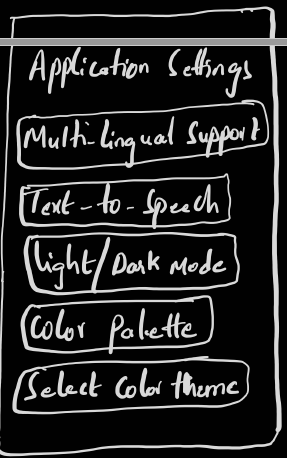 Application Settings
Multi-lingual Support
Text-to-Speech
Light/Dark Mode
Color Palette
Select Color theme